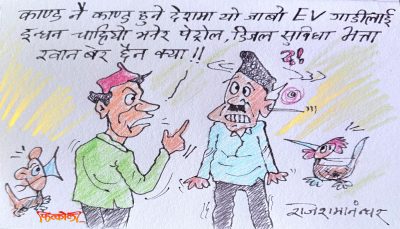 काण्ड नै काण्ड हुने देशमा यो जाबो EV गाडीलाई
इन्धन चाहियो भनेर पेट्रोल, डिजल सुविधा भत्ता
खान बेर हैन क्या !!
?!
फित्कौली
राजेशमानन्धर